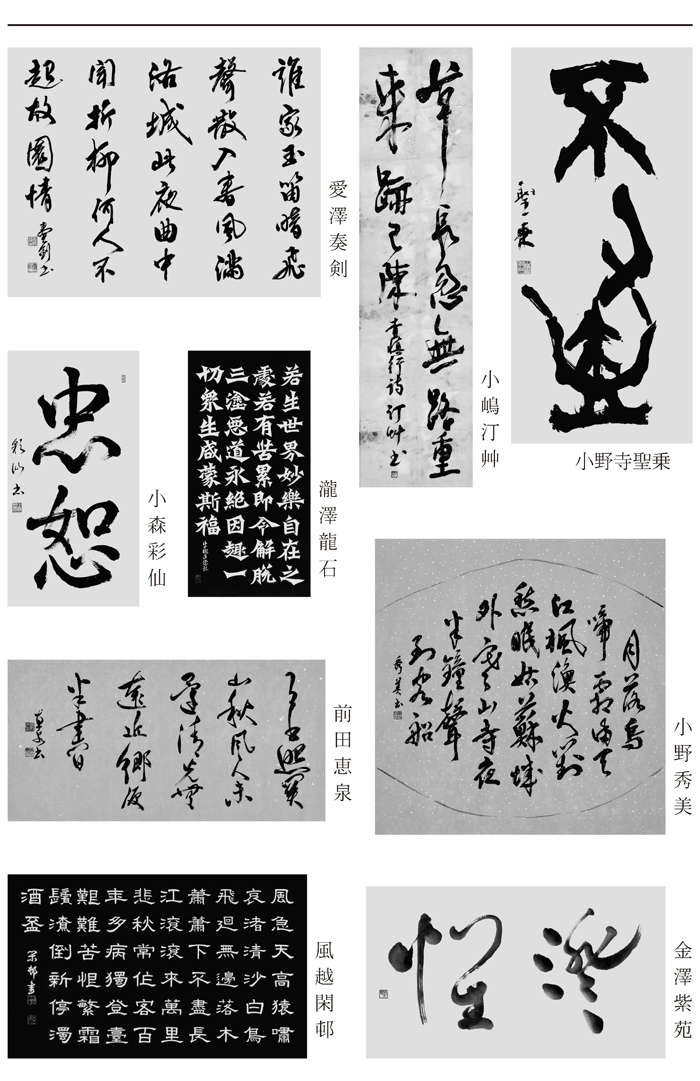 聖乗
小野寺聖乗
草長愁無路重
来跡已陳 查慎行詩 汀艸書
小嶋汀艸
誰家玉笛暗飛
聲散入春風満
洛城此夜曲中
聞折柳何人不
起故園情 奏剣書
愛澤奏剣
若生世界妙樂自在之
處若有苦累即令解脱
三塗悪道永絶因趣一
切衆生咸蒙斯福
瀧澤龍石
忠恕
彩仙書
小森彩仙
月落烏
啼霜満天
江楓漁火對
愁眠姑蘇城
外寒山寺夜
半鐘聲
到客船
秀美書
小野秀美
月出照関
山秋風人未
還清光無
遠近郷涙
半書間
前田恵泉
澄惺
金澤紫苑
風急天高猿嘯
哀渚清沙白鳥
飛廻無邊落木
蕭蕭下不盡長
江滾滾來萬里
悲秋常作客百
年多病獨登臺
艱難苦恨繁霜
鬢潦倒新停濁
酒盃 閑邨書
風越閑邨